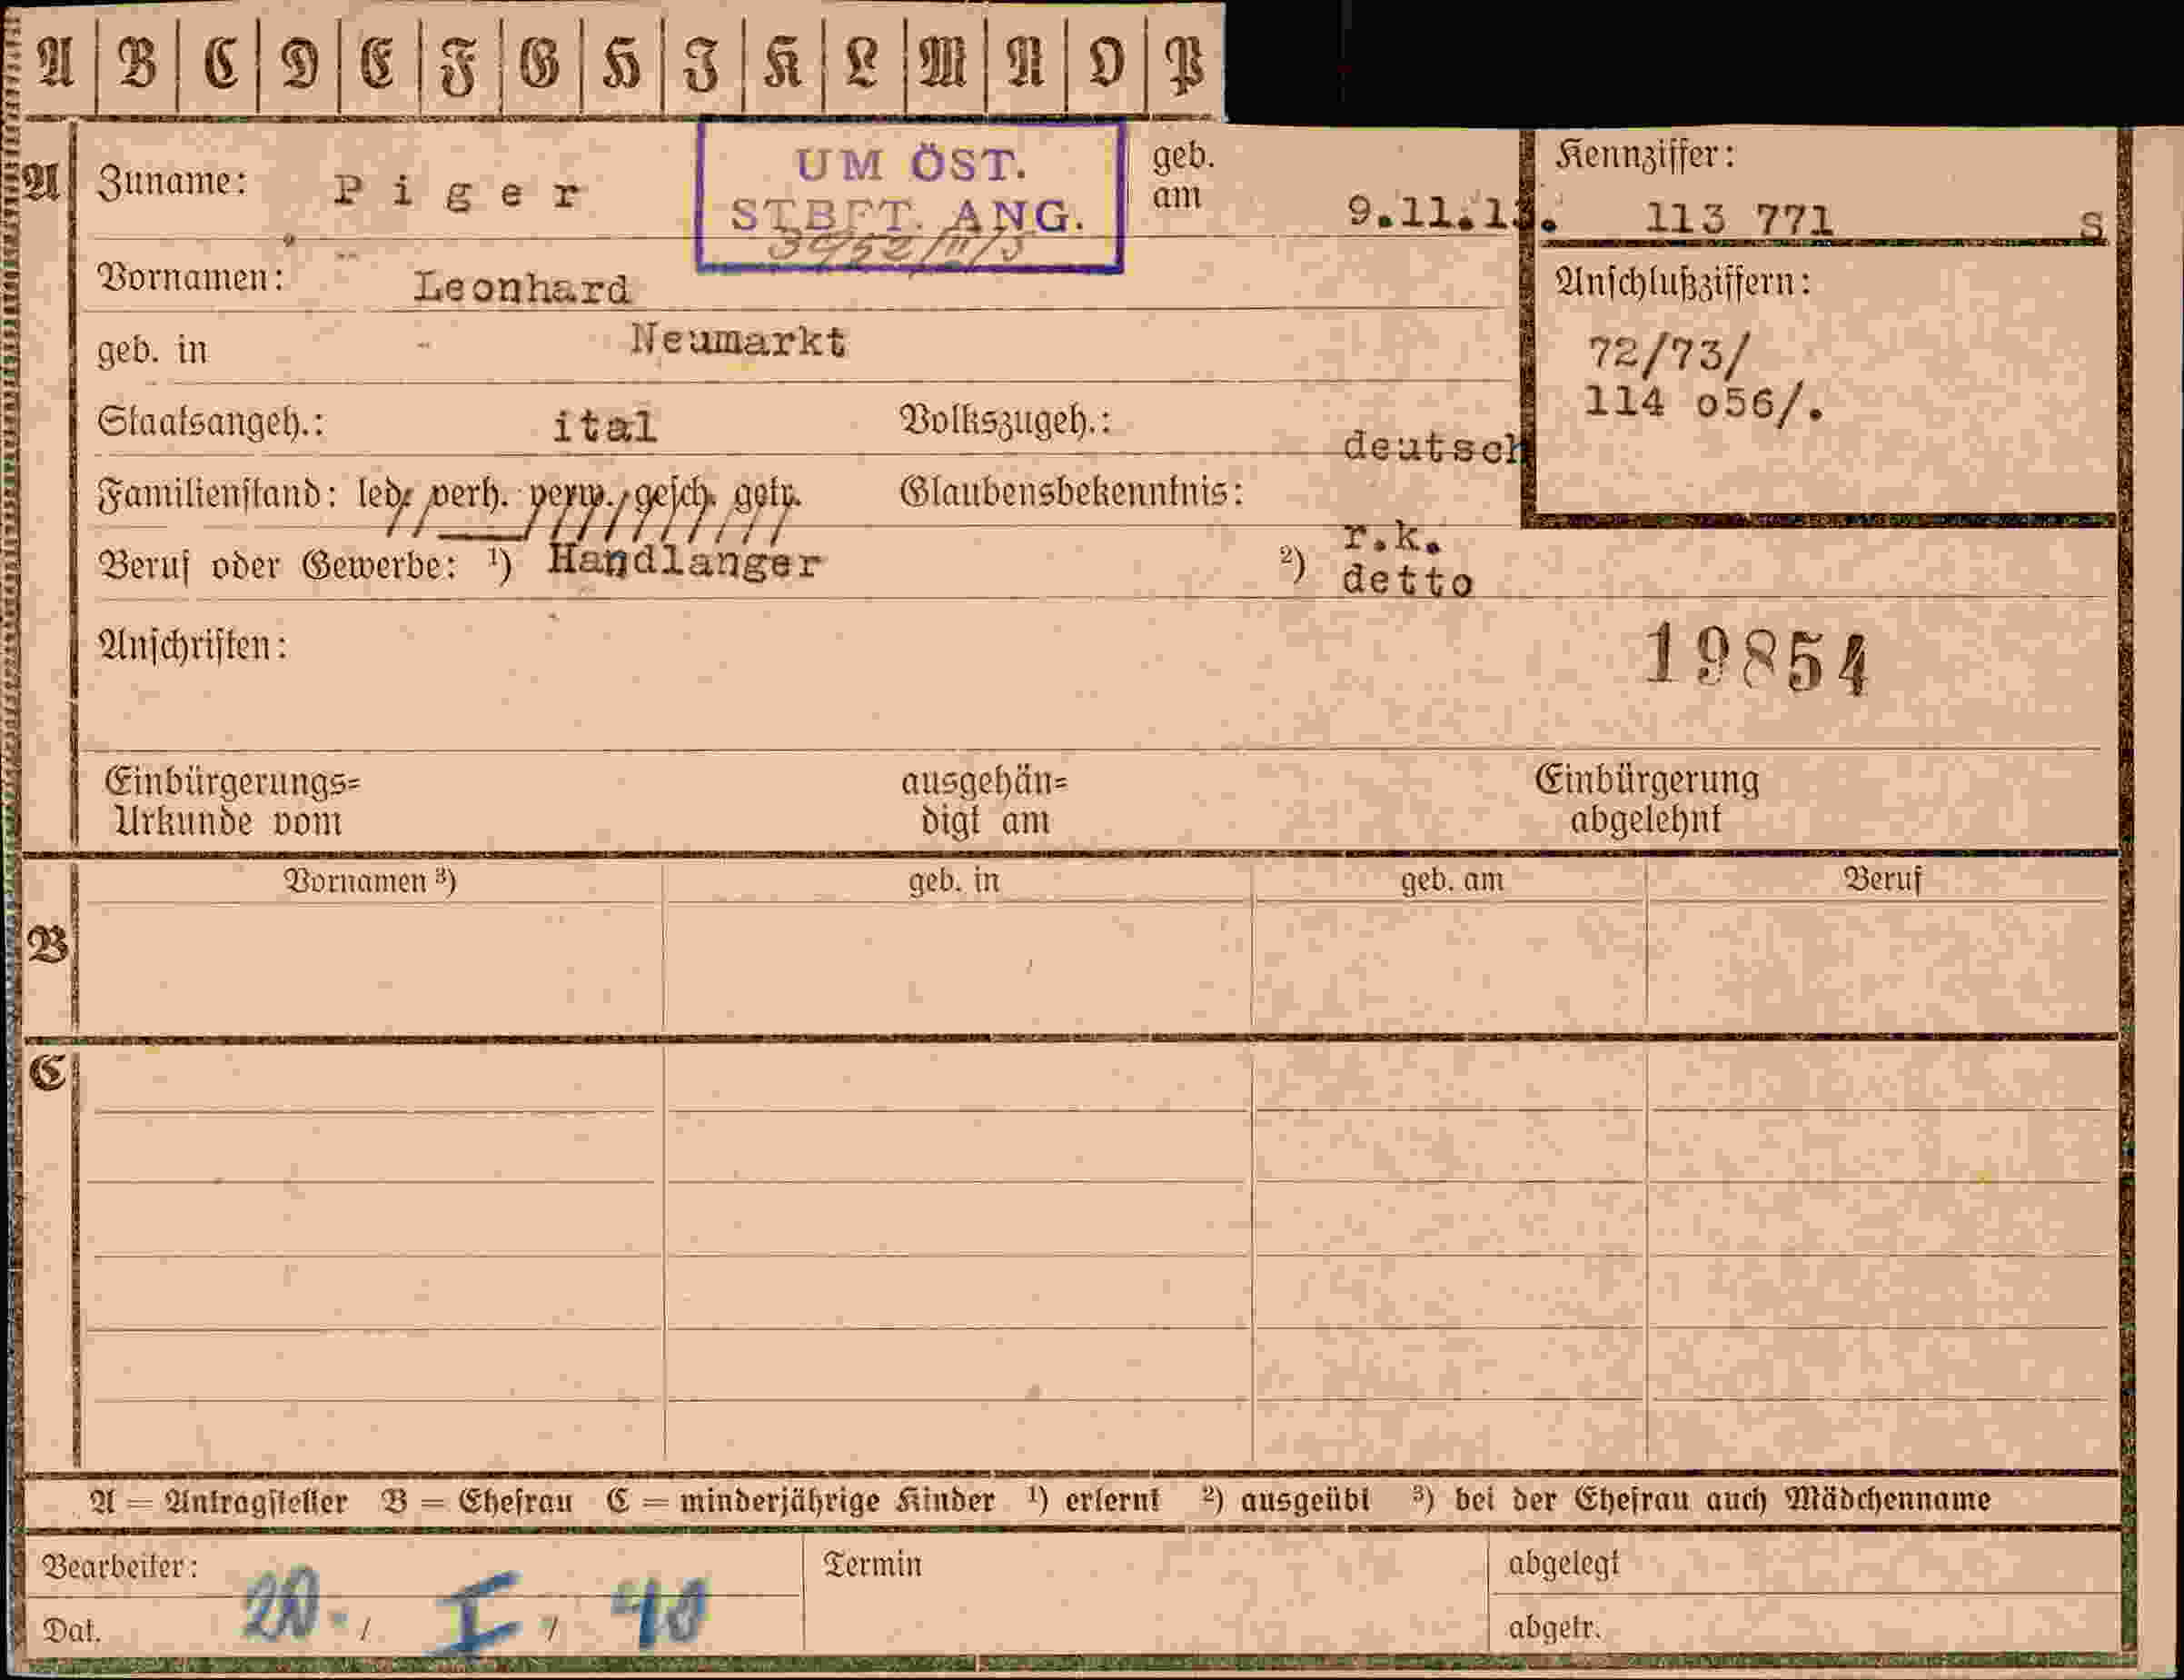 A B C D E F G H I K L M N O P
A Zuname: Piger
UM ÖST.
STBFT. ANG.
geb.
am 9.11.13.
Kennziffer:
113 771 S
Vornamen: Leonhard
Anschlußziffern:
72/73/
114 o56/.
geb. in Neumarkt
Staatsangeh.: ital Volkszugeh.: deutsch
Familienstand: led. verh. verw. gesch. getr. Glaubensbekenntnis: r.k.
Beruf oder Gewerbe: ¹) Handlanger ²) detto
Anschriften:
19854
Einbürgerungs=
Urkunde vom
ausgehän=
digt am
Einbürgerung
abgelehnt
Vornamen ³) geb. in geb. am Beruf
B
C
A = Antragsteller B = Ehefrau C = minderjährige Kinder ¹) erlernt ²) ausgeübt ³) bei der Ehefrau auch Mädchenname
Bearbeiter: Termin abgelegt
Dat. 20. / I / 40 abgetr.